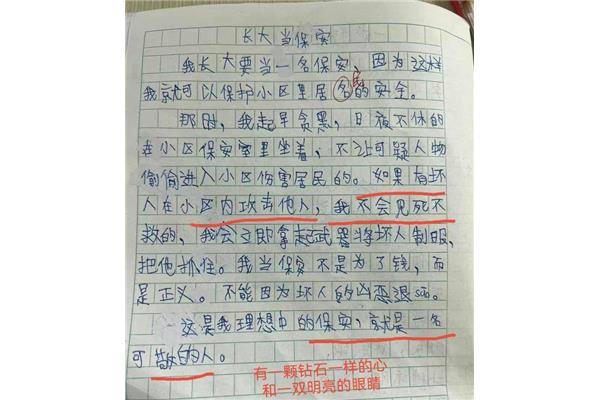 长大当保安
我长大要当一名保安,因为这样
我就可以保护小区里居名的安全。
民
那时,我起早贪黑,日夜不休的
在小区保安室里坐着,不让可疑人物
偷偷进入小区伤害居民的。如果有坏
人在小区内攻击他人,我不会见死不
救的,我会立即拿起武器将坏人制服,
把他抓住。我当保安不是为了钱,而
是正义。不能因为坏人的凶恶退suo。
这是我理想中的保安,就是一名
可敬的人。
有一颗钻石一样的心
和一双明亮的眼睛